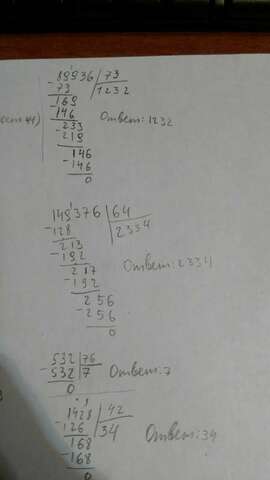 89936 | 73
- 73 | 1232
169
146
- 233
219
146
- 146
0
Ответ: 1232
149376 | 64
- 128 | 2334
213
- 192
217
- 192
256
- 256
0
Ответ: 2334
532 | 76
- 532 | 7
0
Ответ: 7
1428 | 42
- 126 | 34
168
- 168
0
Ответ: 34